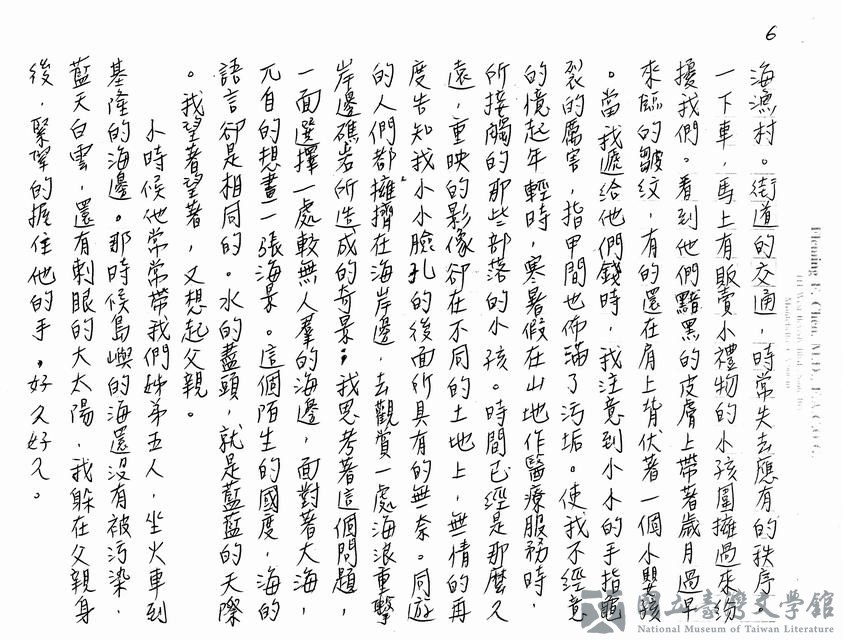 6
海漁村。街道的交通，時常失去應有的秩序，
一下車，馬上有販賣小禮物的小孩圍擁過來紛
擾我們。看到他們黯黑的皮膚上帶著歲月過早
來臨的皺紋，有的還在肩上背伏著一個小嬰孩
。當我遞給他們錢時，我注意到小小的手指龜
裂的厲害，指甲間也佈滿了污垢。使我不經意
的憶起年輕時，寒暑假在山地作醫療服務時，
所接觸的那些部落的小孩。時間已經是那麼久
遠，重映的影像卻在不同的土地上，無情的再
度告知我小小臉孔的後面所具有的無奈。同遊
的人們都擁擠在海岸邊，去觀賞一處海浪重擊
岸邊礁岩所造成的奇景；我思考著這個問題，
一面選擇一處較無人羣的海邊，面對著大海，
兀自的想畫一張海景。這個陌生的國度，海的
語言卻是相同的。水的盡頭，就是藍藍的天際
。我望著望著，又想起父親。
小時候他常常帶我們姊弟五人，坐火車到
基隆的海邊。那時候島嶼的海還沒有被污染，
藍天白雲，還有刺眼的大太陽，我躲在父親身
後，緊緊的握住他的手。好久好久。
Fleming F. Chen, M.D., F.A.C.O.G.
國立臺灣文學館
National Museum of Taiwan Literature